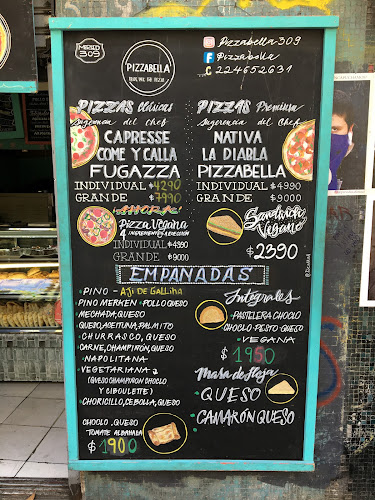 MERCED
309
PIZZABELLÁ
Pizzabella309
Pizzabella
224652631
PIZZAS Clásicas
Sugerencia del chef
CAPRESSE
COME Y CALLA
FUGAZZA
INDIVIDUAL $4290
GRANDE $7990
AHORA
Pizza Vegana
4 INGREDIENTES A ELECCION
INDIVIDUAL $4390
GRANDE $9000
PIZZAS Premium
Sugerencia del Chef
NATIVA
LA DIABLA
PIZZABELLA
INDIVIDUAL $4990
GRANDE $9000
Sandwich
Vegano
$2390
EMPANADAS
• PINO - AJI DE GALLINA
PINO MERKEN • POLLO QUESO
MECHADA, QUESO
QUESO, ACEITUNA, PALMITO
• CHURRASCO, QUESO
CARNE, CHAMPIÑON, QUESO
• NAPOLITANA
• VEGETARIANA 2
(QUESO CHAMPIÑON CHOCLO
Y CIBOULETTE)
• CHORICILLO, CEBOLLA, QUESO
CHOCLO, QUESO
TOMATE ALBAHACA
$1900
Integrales
• PASTELERA CHOCLO
CHOCLO PESTO QUESO
• VEGANA
$1950
Masa de Hoja
• QUESO
• CAMARÓN QUESO